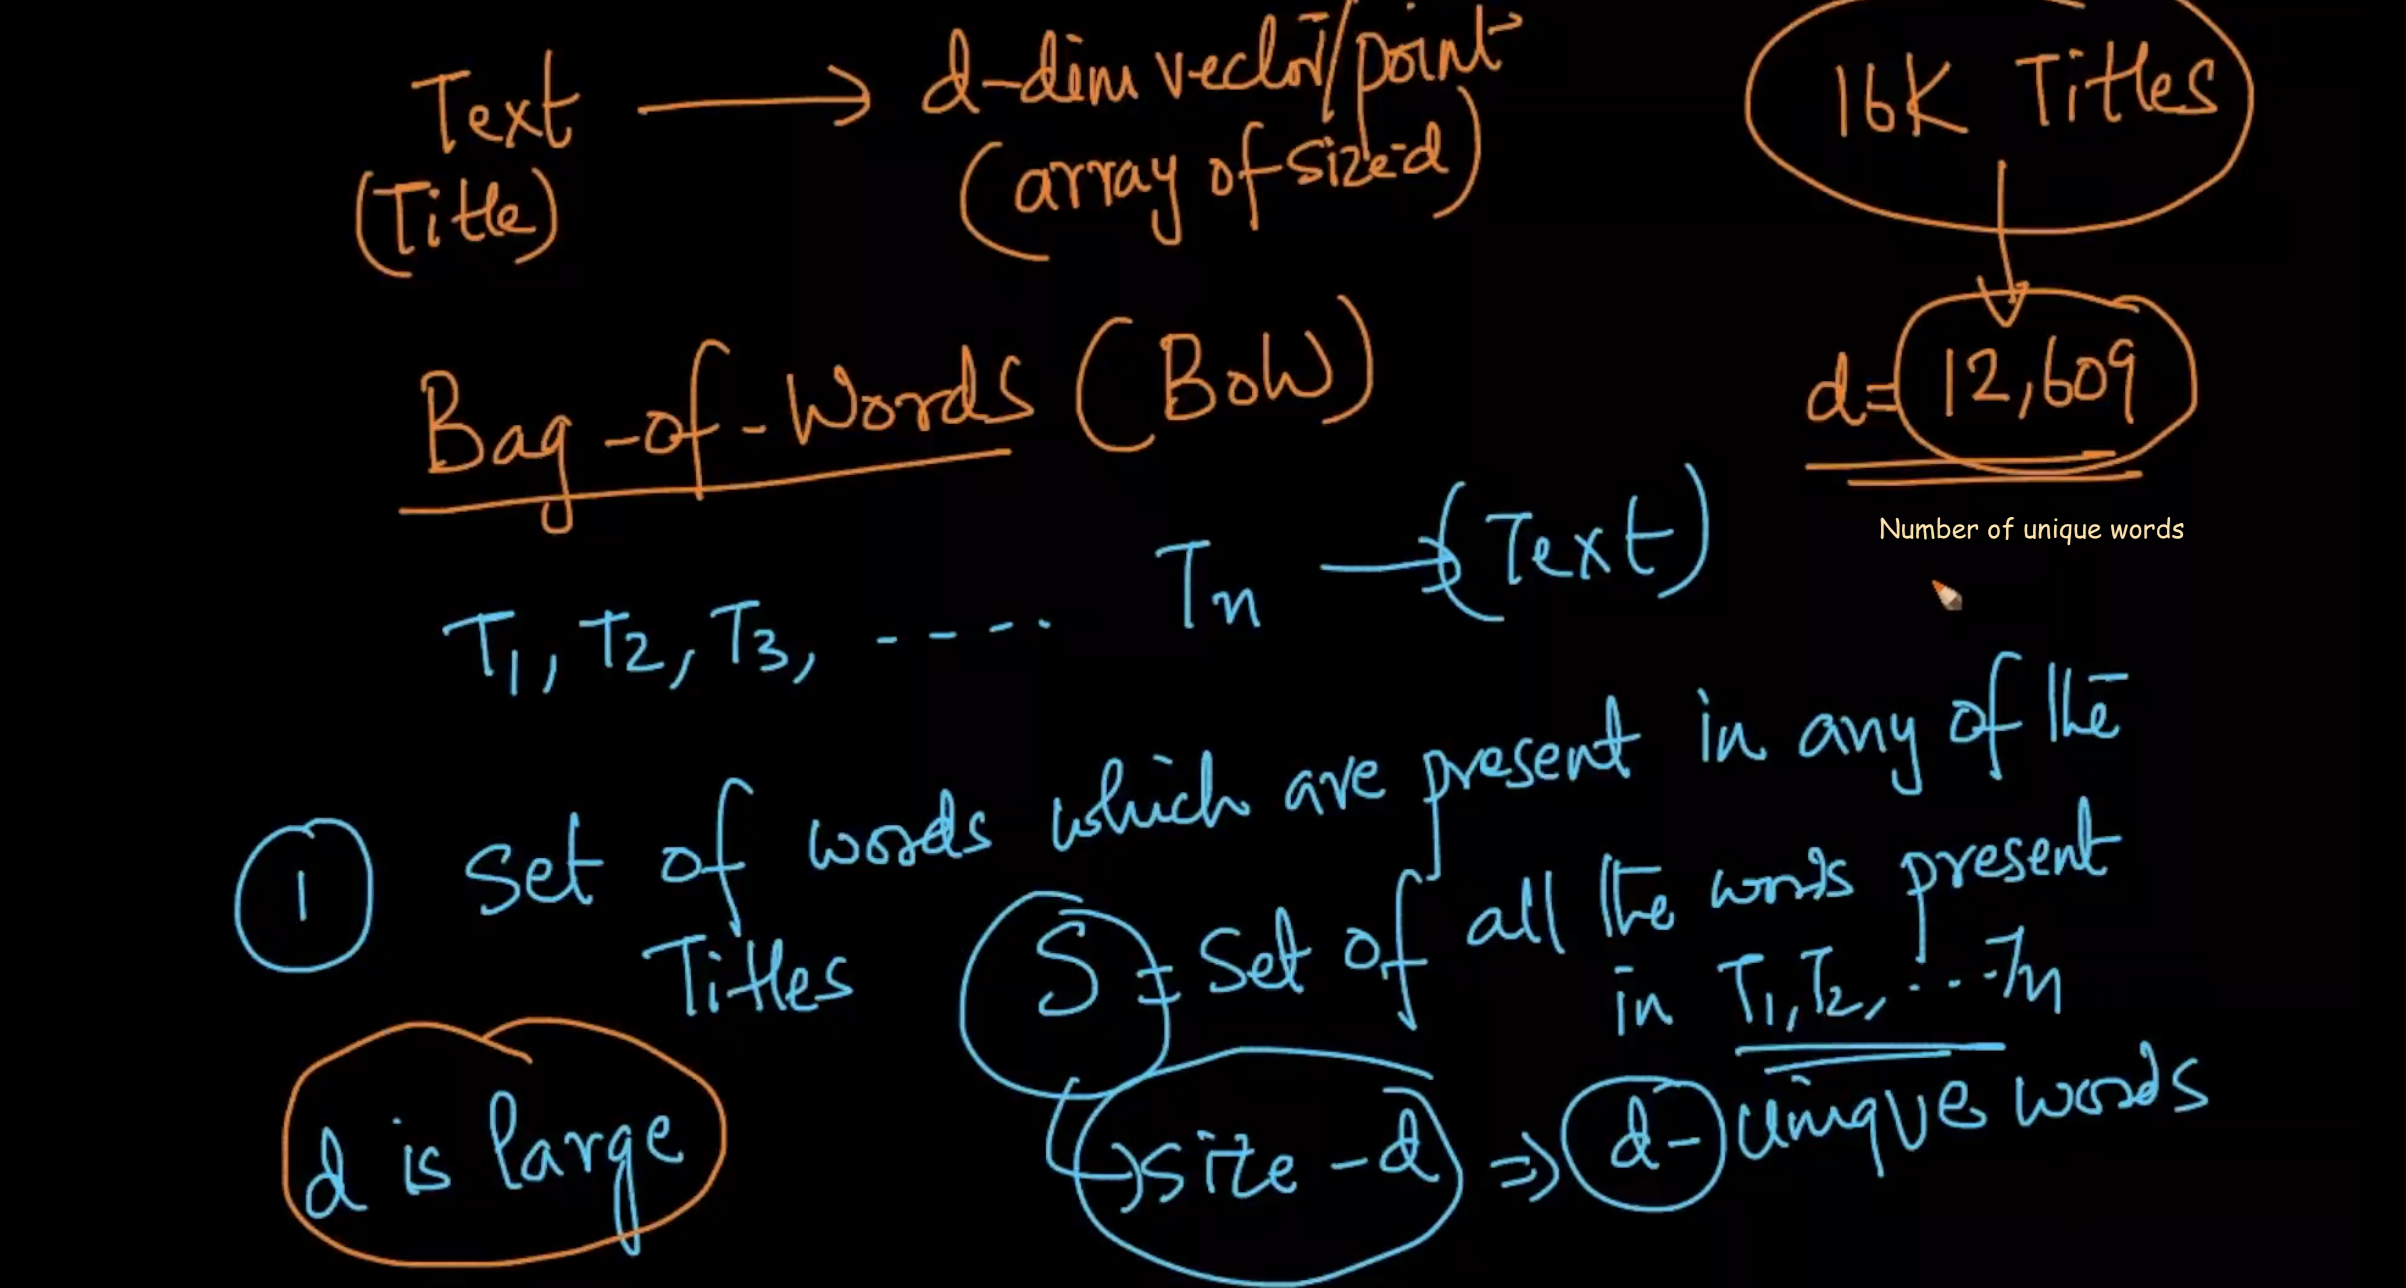 Text → d-dim vector/point
(Title) (array of size-d)
16K Titles
d = 12,609
Number of unique words
Bag-of-Words (BoW)
T1, T2, T3, ----. Tn → (Text)
1 Set of words which are present in any of the
Titles
S = Set of all the words present
in T1, T2, ... Tn
d is large
↳ size-d ⇒ d-unique words